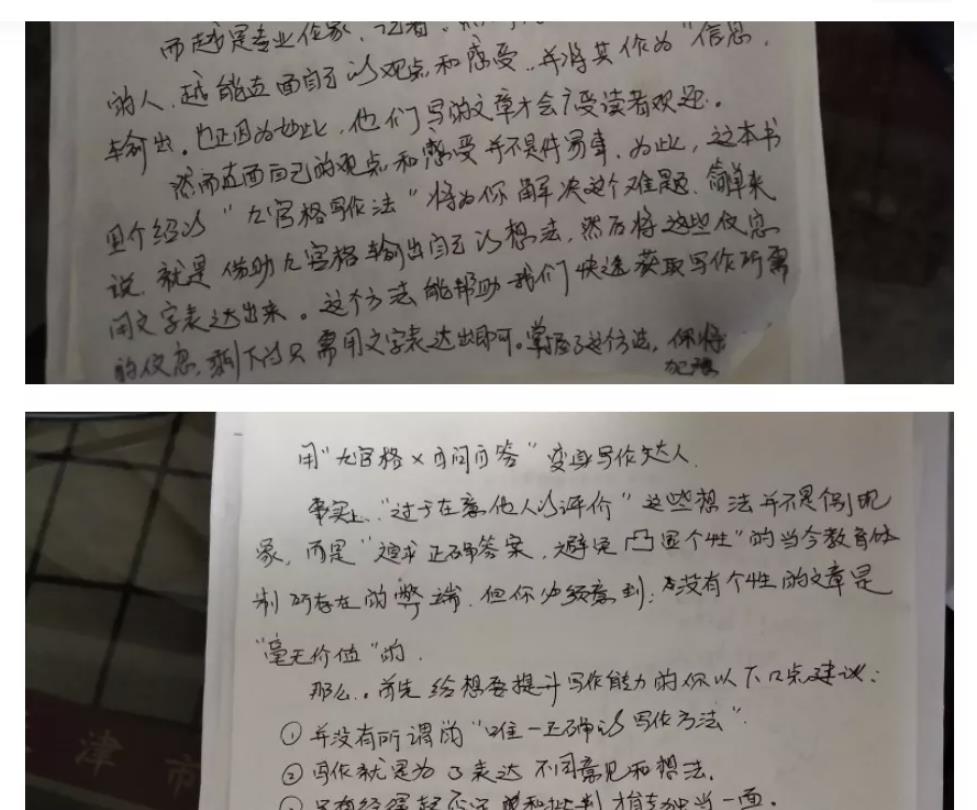 而越是专业作家、记者、
的人,越能直面自己的观点和感受,并将其作为“信息,
输出。也正因为如此,他们写的文章才会广受读者欢迎。
然而直面自己的观点和感受并不是件易事,为此,这本书
介绍的“九宫格写作法”将为你解决这个难题,简单来
说,就是借助九宫格输出自己的想法,然后将这些信息
用文字表达出来。这个方法能帮助我们快速获取写作所需
的信息,剩下的只需用文字表达出即可。掌握了这个方法,你将
用“九宫格×自问自答”变身写作达人.
事实上,“过于在意他人的评价”这些想法并不是个别现
象,而是“追求正确答案,避免凸显个性”的当今教育体
制所存在的弊端.但你必须意到:没有个性的文章是
“毫无价值”的.
那么,首先给想要提升写作能力的你以下口点建议:
①并没有所谓的“唯一正确的写作方法”.
②写作就是为了表达不同意见和想法.
只有经得起否定和批判才能独当一面.
津市